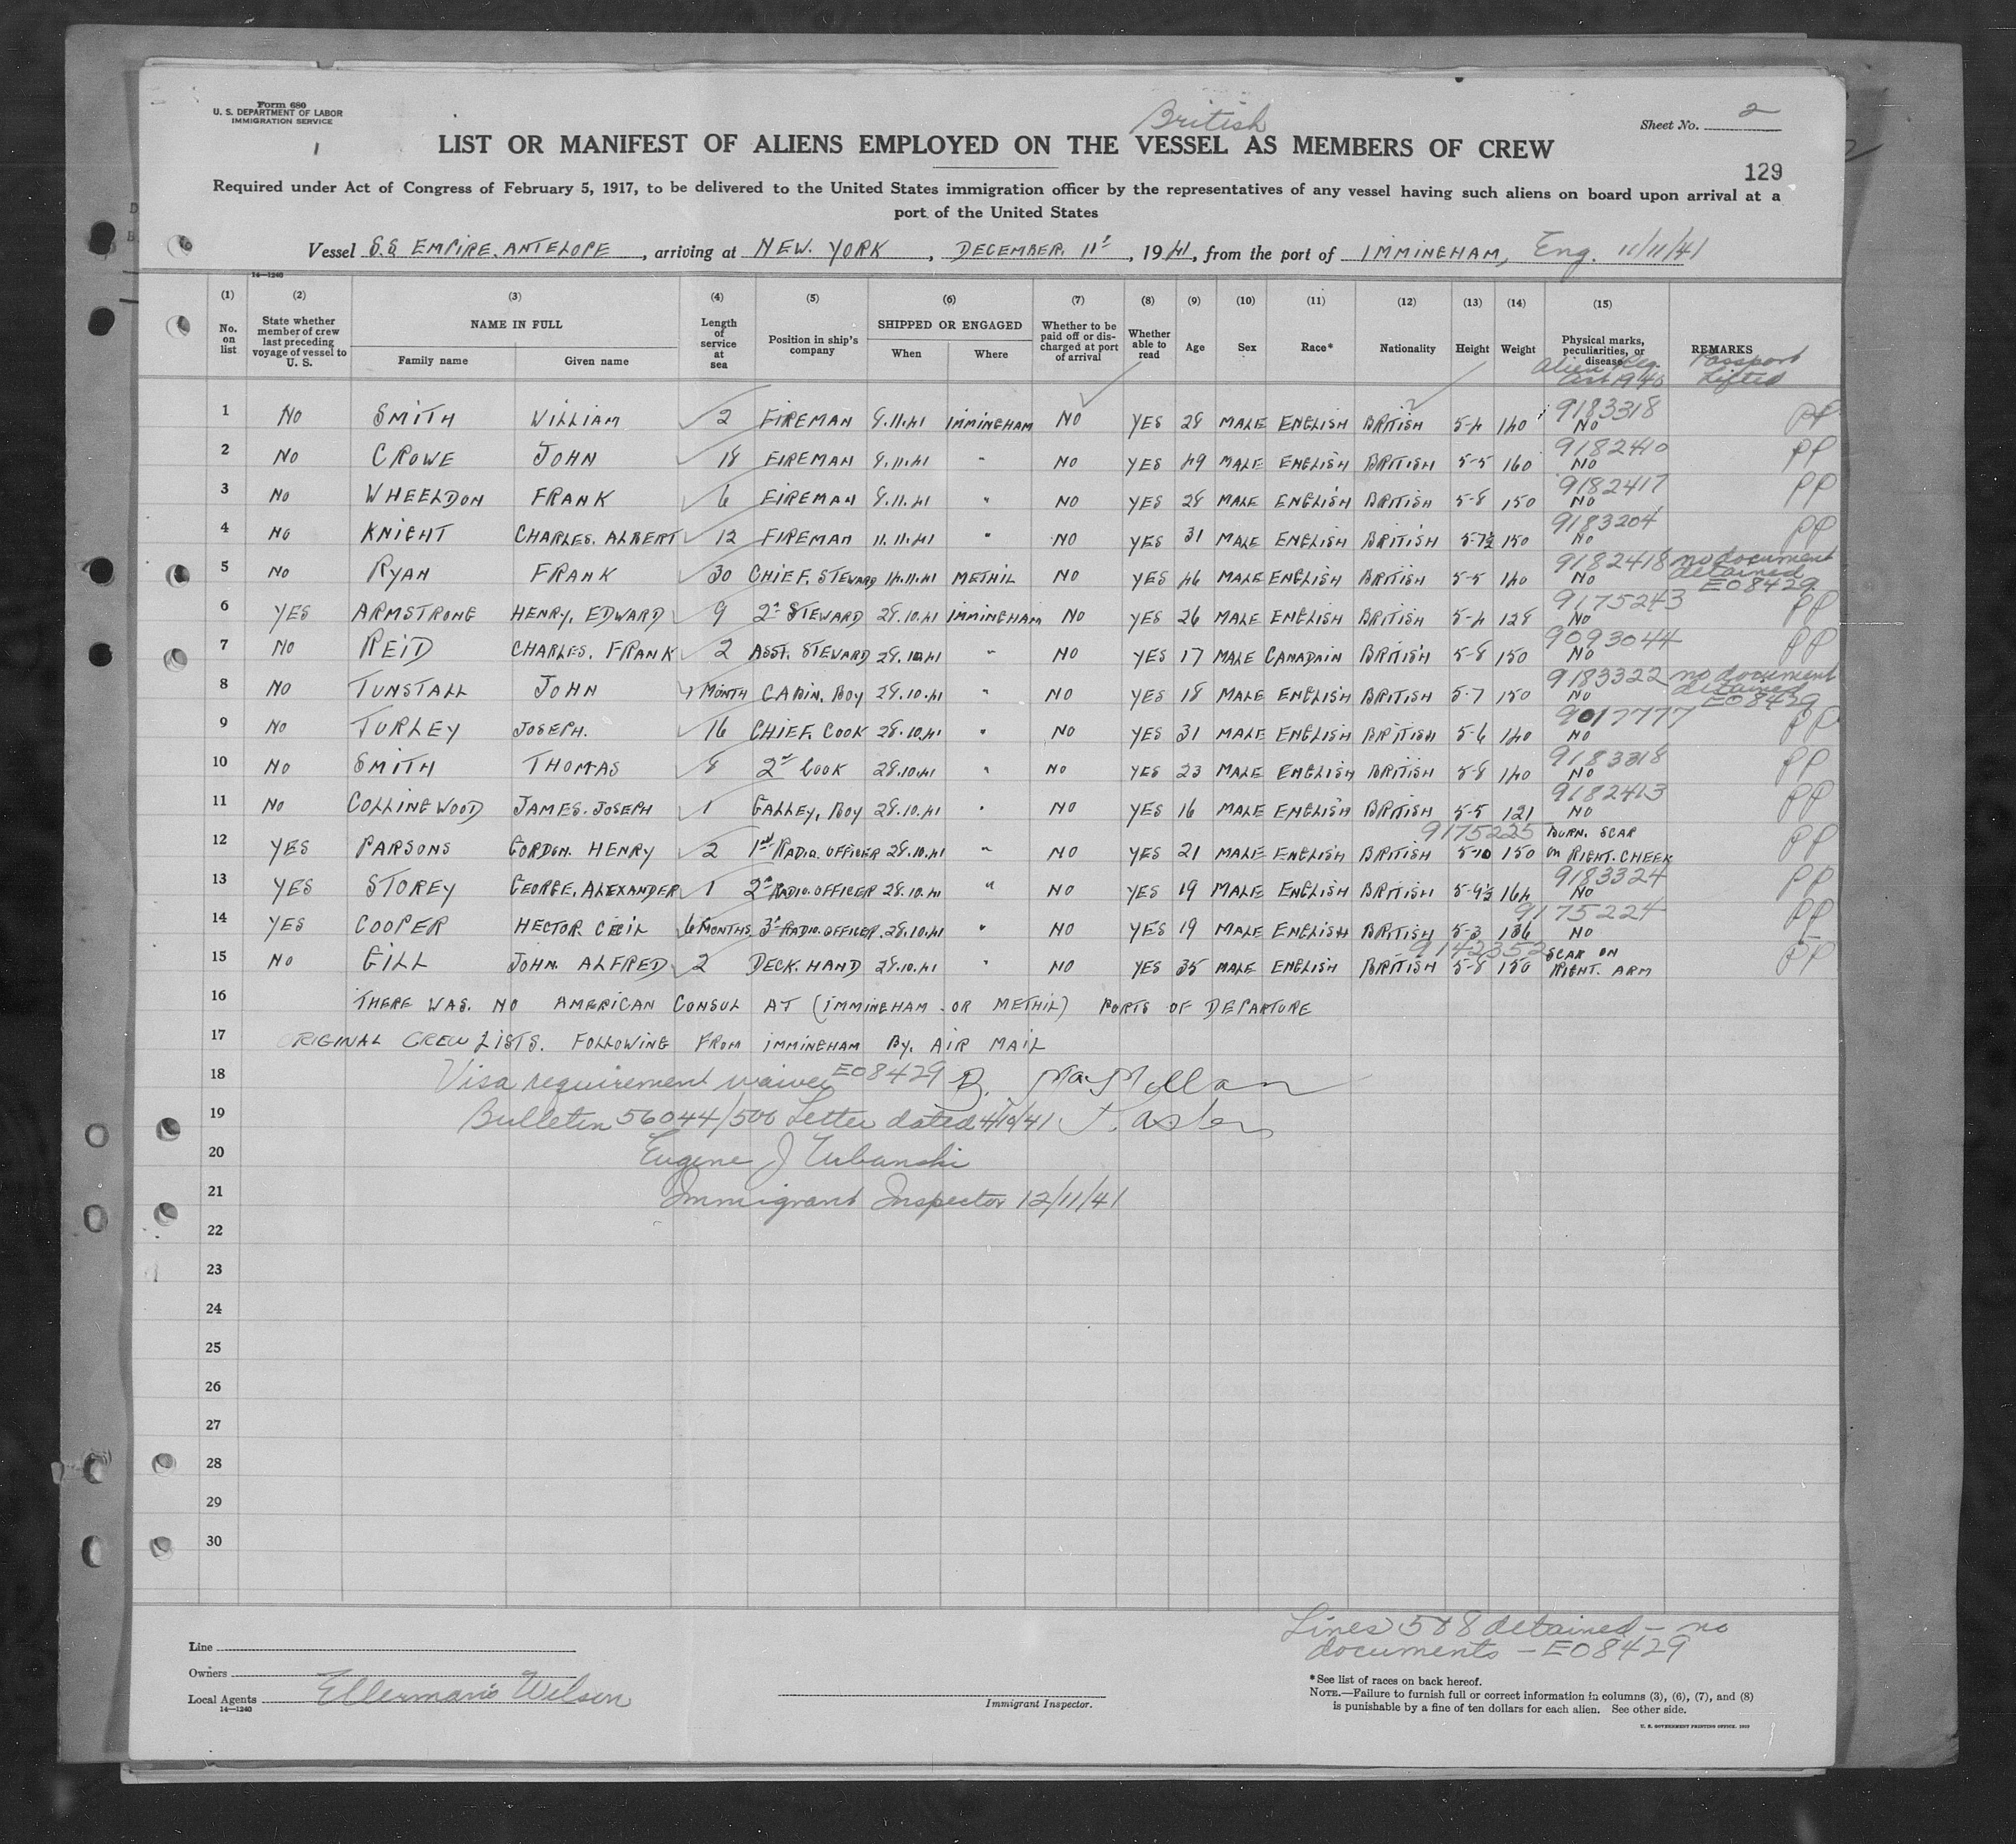 Form 680
U. S. DEPARTMENT OF LABOR
IMMIGRATION SERVICE
British
Sheet No. 2
LIST OR MANIFEST OF ALIENS EMPLOYED ON THE VESSEL AS MEMBERS OF CREW
129
Required under Act of Congress of February 5, 1917, to be delivered to the United States immigration officer by the representatives of any vessel having such aliens on board upon arrival at a
port of the United States
Vessel S.S EMPIRE. ANTELOPE, arriving at NEW. YORK, DECEMBER. 11th, 1941, from the port of IMMINGHAM, Eng. 11/11/41
14—1240
(1) (2) (3) (4) (5) (6) (7) (8) (9) (10) (11) (12) (13) (14) (15)
No. on list
State whether member of crew last preceding voyage of vessel to U. S.
NAME IN FULL
Family name Given name
Length of service at sea
Position in ship's company
SHIPPED OR ENGAGED
When Where
Whether to be paid off or discharged at port of arrival
Whether able to read
Age Sex Race* Nationality Height Weight
Physical marks, peculiarities, or disease
REMARKS
Alien Reg. Act 1940
Passport Lifted
1 NO SMITH WILLIAM 2 FIREMAN 9.11.41 IMMINGHAM NO YES 28 MALE ENGLISH BRITISH 5-4 140 9183318 NO PP
2 NO CROWE JOHN 18 FIREMAN 9.11.41 " NO YES 49 MALE ENGLISH BRITISH 5-5 160 9182410 NO PP
3 NO WHEELDON FRANK 6 FIREMAN 9.11.41 " NO YES 28 MALE ENGLISH BRITISH 5-8 150 9182417 NO PP
4 NO KNIGHT CHARLES. ALBERT 12 FIREMAN 11.11.41 " NO YES 31 MALE ENGLISH BRITISH 5-7½ 150 9183204 NO PP
5 NO RYAN FRANK 30 CHIEF. STEWARD 14.11.41 METHIL NO YES 46 MALE ENGLISH BRITISH 5-5 140 9182418 NO no document detained EO8429
6 YES ARMSTRONG HENRY, EDWARD 9 2nd STEWARD 28.10.41 IMMINGHAM NO YES 26 MALE ENGLISH BRITISH 5-4 128 9175243 NO PP
7 NO REID CHARLES. FRANK 2 ASST. STEWARD 28.10.41 " NO YES 17 MALE CANADAIN BRITISH 5-8 150 9093044 NO PP
8 NO TUNSTALL JOHN 1 MONTH CABIN. BOY 28.10.41 " NO YES 18 MALE ENGLISH BRITISH 5-7 150 9183322 NO no document detained EO8429
9 NO TURLEY JOSEPH. 16 CHIEF. COOK 28.10.41 " NO YES 31 MALE ENGLISH BRITISH 5-6 140 9017777 NO PP
10 NO SMITH THOMAS 8 2nd COOK 28.10.41 " NO YES 23 MALE ENGLISH BRITISH 5-8 140 9183318 NO PP
11 NO COLLINGWOOD JAMES. JOSEPH 1 GALLEY, BOY 28.10.41 " NO YES 16 MALE ENGLISH BRITISH 5-5 121 9182413 NO PP
12 YES PARSONS GORDON. HENRY 2 1st RADIO. OFFICER 28.10.41 " NO YES 21 MALE ENGLISH BRITISH 5-10 150 9175225 BURN. SCAR ON RIGHT. CHEEK PP
13 YES STOREY GEORGE, ALEXANDER 1 2nd RADIO. OFFICER 28.10.41 " NO YES 19 MALE ENGLISH BRITISH 5-9½ 164 9183324 NO PP
14 YES COOPER HECTOR CECIL 6 MONTHS 3rd RADIO. OFFICER. 28.10.41 " NO YES 19 MALE ENGLISH BRITISH 5-3 136 9175224 NO PP
15 NO GILL JOHN. ALFRED 2 DECK. HAND 28.10.41 " NO YES 35 MALE ENGLISH BRITISH 5-8 150 9142352 SCAR ON RIGHT. ARM PP
16 THERE WAS. NO AMERICAN CONSUL AT (IMMINGHAM OR METHIL) PORTS OF DEPARTURE
17 ORIGINAL CREW LISTS. FOLLOWING FROM IMMINGHAM BY. AIR MAIL
18 Visa requirement waived EO8429 B. MacMillan
19 Bulletin 56044/500 Letter dated 4/19/41
20 Eugene J Urbanski
21 Immigrant Inspector 12/11/41
22
23
24
25
26
27
28
29
30
Lines 5 & 8 detained — no
documents — EO8429
Line
Owners
Local Agents Ellerman's Wilson
14—1240
Immigrant Inspector.
*See list of races on back hereof.
NOTE.—Failure to furnish full or correct information in columns (3), (6), (7), and (8)
is punishable by a fine of ten dollars for each alien. See other side.